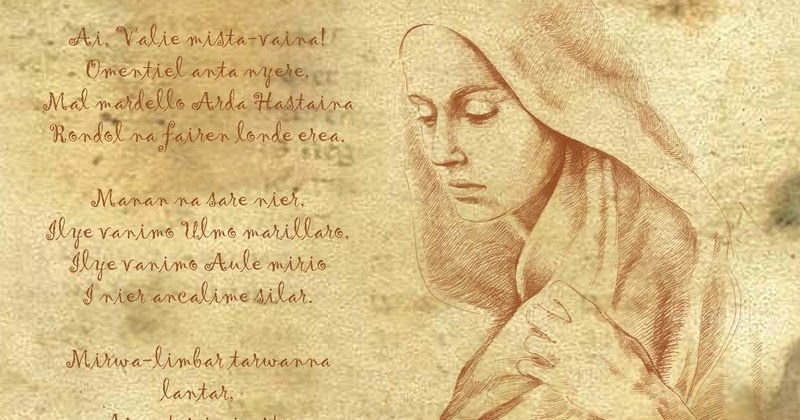 Ai, Valie mista-vaina!
Omentiel anta nyere,
Mal mardello Arda Hastaina
Rondol na fairen londe erea.
Manan na sare nier,
Ilye vanimo Ulmo marillaro,
Ilye vanimo Aule mirio
I nier ancalime silar.
Mirwa-limbar tarwanna
lantar,